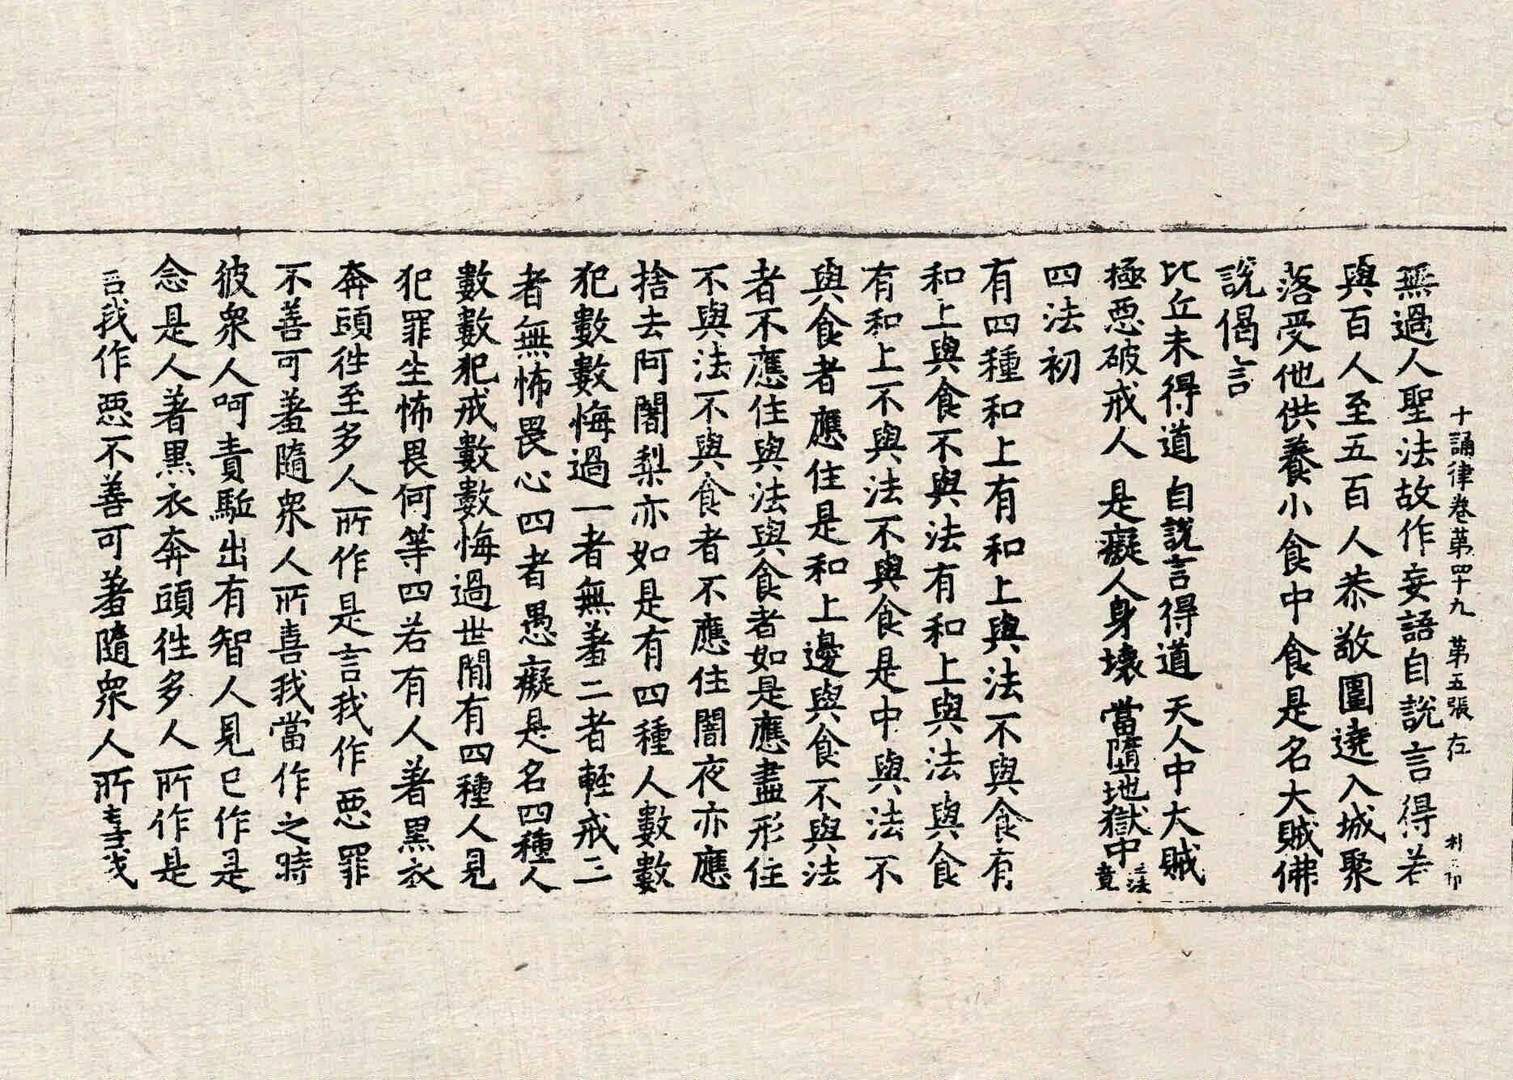 十誦律卷第四十九 第五張 左
無過人聖法故作妄語自說言得若
與百人至五百人恭敬圍遶入城聚
落受他供養小食中食是名大賊佛
說偈言
比丘未得道 自說言得道 天人中大賊
極惡破戒人 是癡人身壞 當墮地獄中 三法竟
四法初
有四種和上有和上與法不與食有
和上與食不與法有和上與法與食
有和上不與法不與食是中與法不
與食者應住是和上邊與食不與法
者不應住與法與食者如是應盡形住
不與法不與食者不應住闇夜亦應
捨去阿闍梨亦如是有四種人數數
犯數數悔過一者無羞二者輕戒三
者無怖畏心四者愚癡是名四種人
數數犯戒數數悔過世間有四種人見
犯罪生怖畏何等四若有人著黑衣
奔頭往至多人所作是言我作惡罪
不善可羞隨眾人所喜我當作之時
彼眾人呵責駈出有智人見已作是
念是人著黑衣奔頭往多人所作是
言我作惡不善可羞隨眾人所喜我